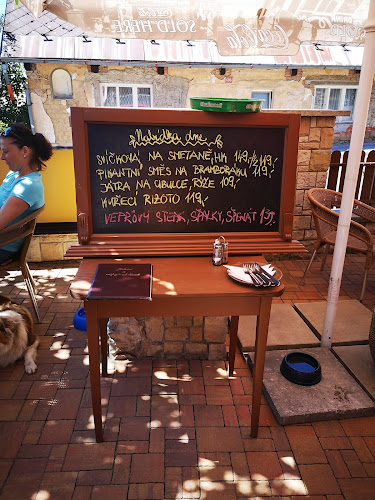 SOLD HERE
Coca-Cola
Nabídka dne
SVÍČKOVÁ NA SMETANĚ, HK 149,-/119,-
PIKANTNÍ SMĚS NA BRAMBORÁKU 119,-
JÁTRA NA CIBULCE, RÝŽE 109,-
KUŘECÍ RIZOTO 119,-
VEPŘOVÝ STEAK, ŠPALKY, ŠPENÁT